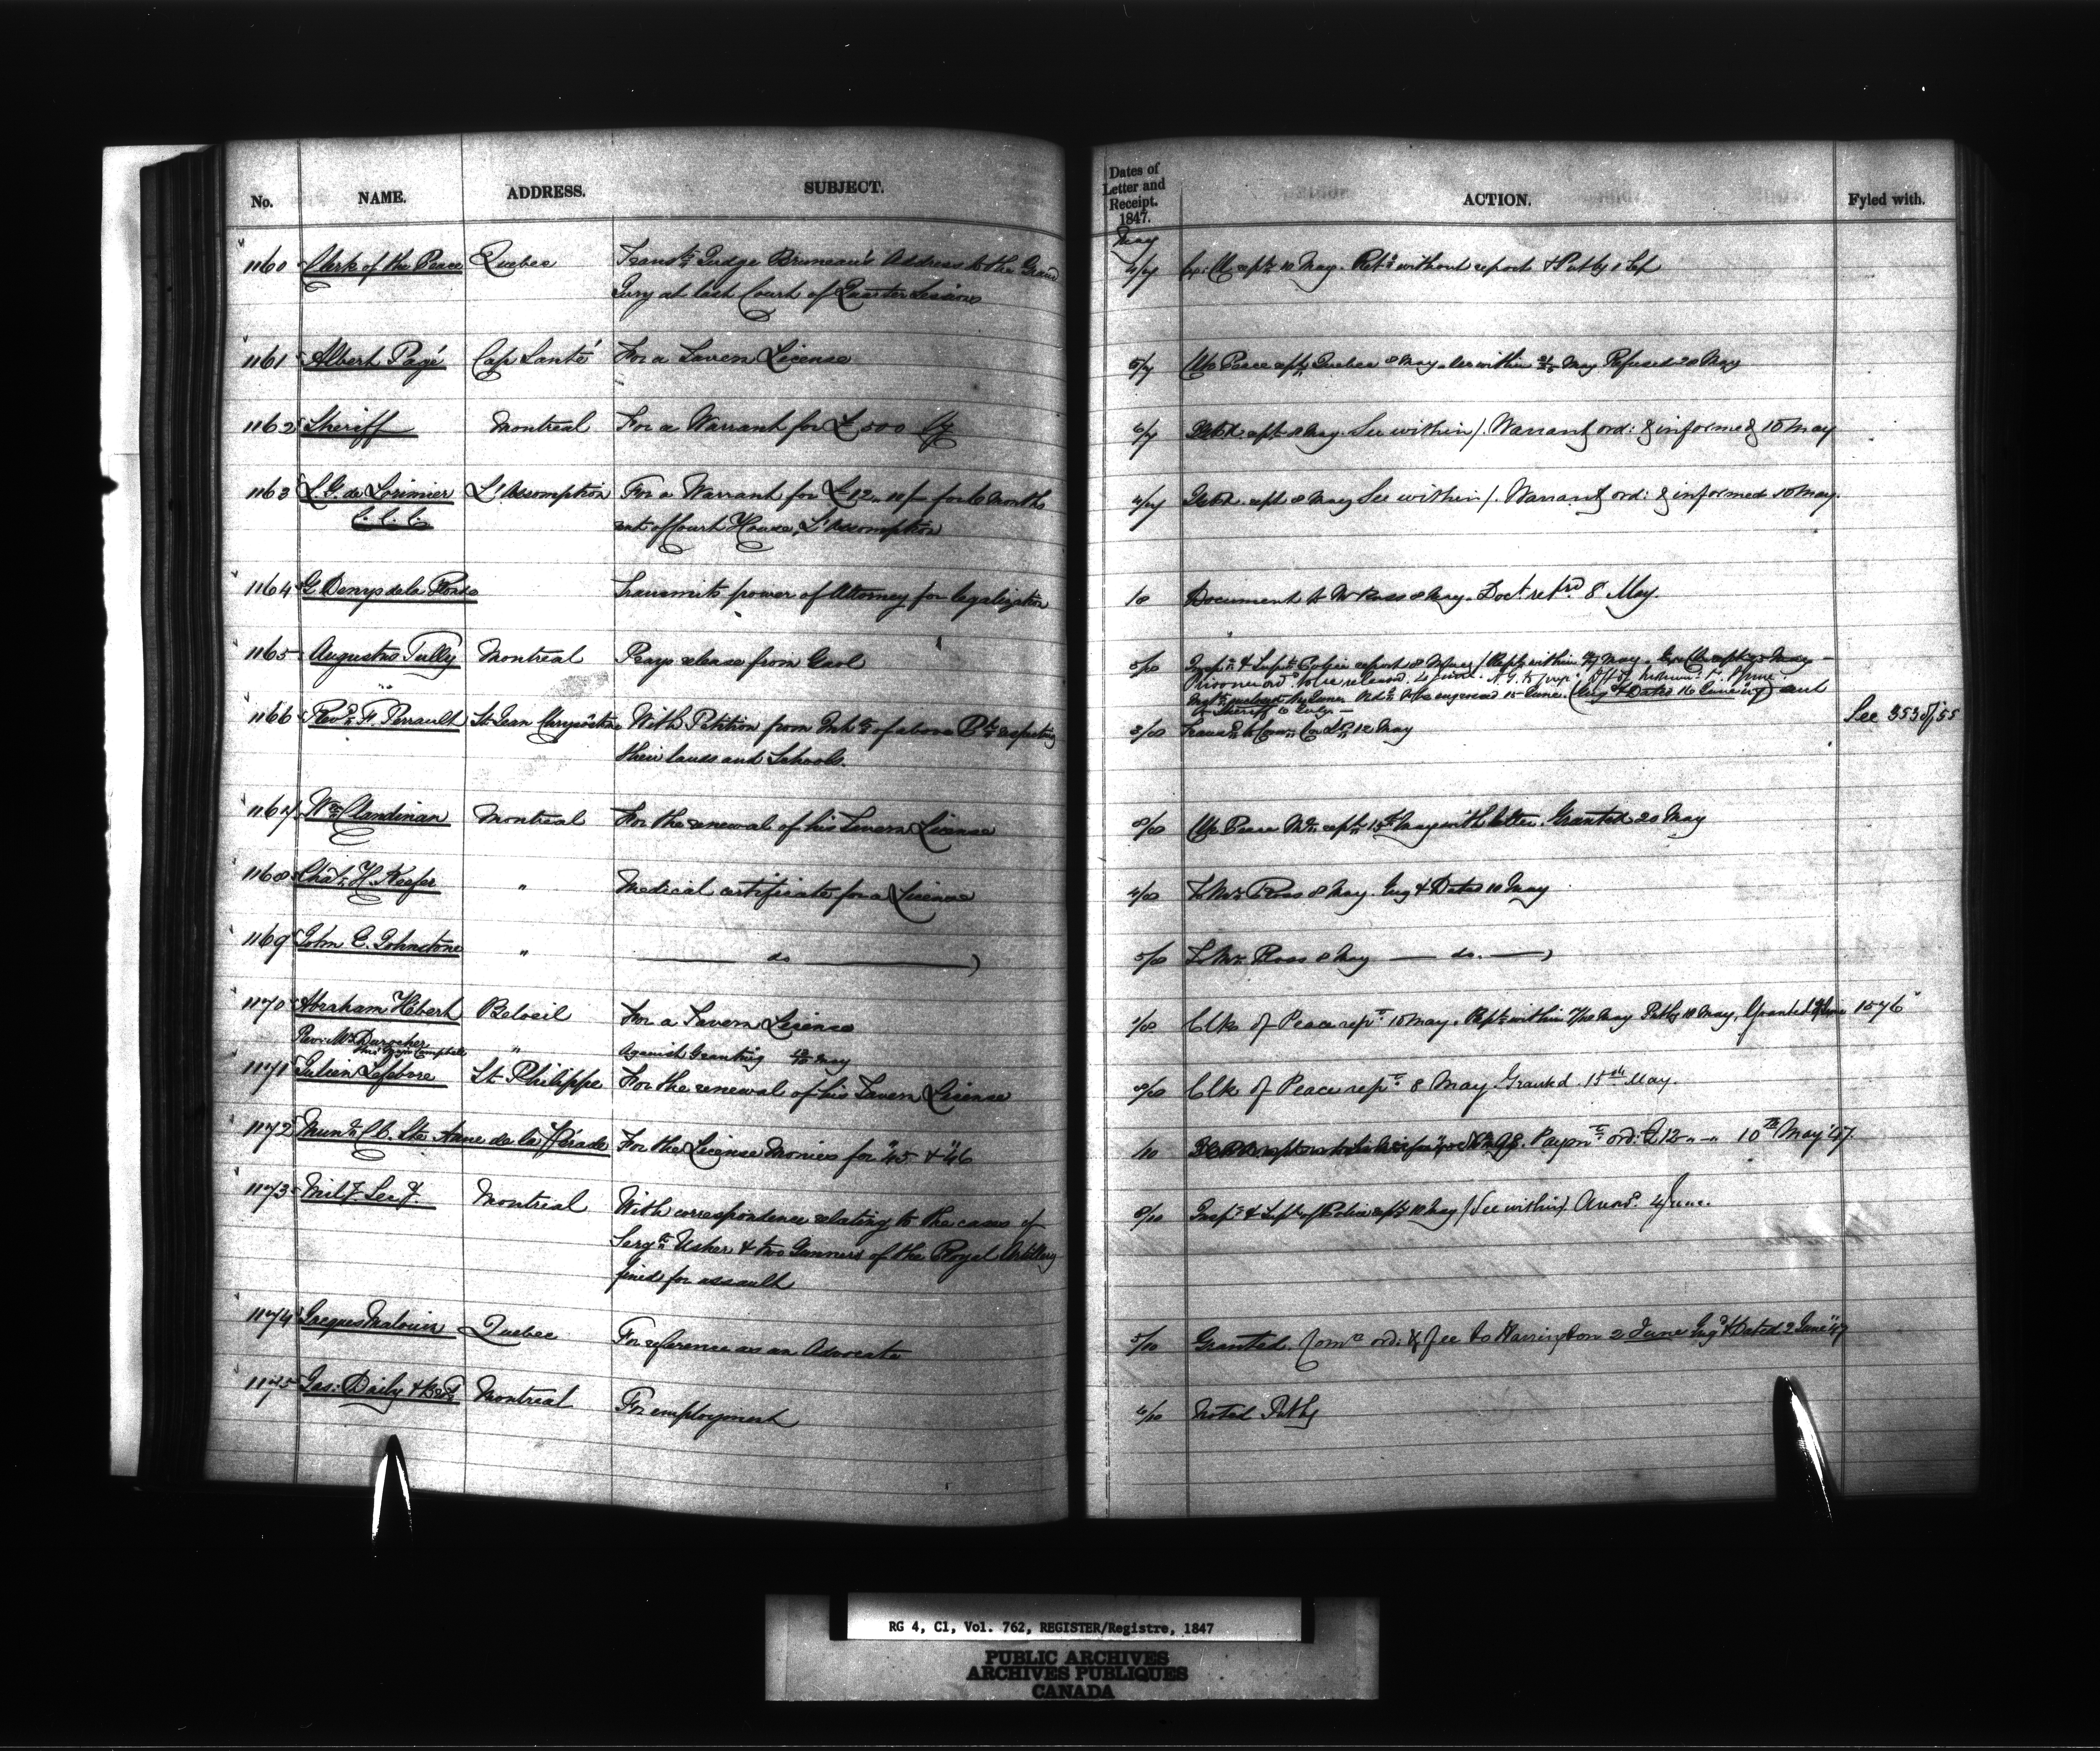 No. NAME. ADDRESS. SUBJECT.
Dates of
Letter and
Receipt.
1847.
ACTION. Fyled with.
May
1160 Clerk of the Peace Quebec Transts Judge Bruneau's Address to the Grand
Jury at last Court of Quarter Sessions
4/7 10 May. without report & Put by
1161 Albert Pagé Cap Santé For a Tavern License
5/7 Clk Peace Quebec 8 May within May Refused 20 May
1162 Sheriff Montreal For a Warrant for £500 Cy
6/7 8 May. See within/. Warrant ord: & informed 10 May
1163 L. G. de Lorimier L'Assomption For a Warrant for £12 10/ for 6 months
C. C. C. rent of Court House, L'Assomption
4/7 8 May See within/. Warrant ord: & informed 10 May.
1164 G Denys de la Ronde Transmits power of Attorney for legalization
Document to Mr Ross 8 May. Doct retd 8 May.
1165 Augustus Tully Montreal Prays release from Gaol
5/8 Insp. & Supt Police report 8 May / within May
Prisoner ord to be released
to be engrossed 15 June. (Eng & Dated 16 June 47) sent
to Sheriff
1166 Revd F. Perrault St Jean Chrysostome With Petition from Inhts of above respecting
their lands and Schools.
3/8 12 May
See 353 of 55
1167 Wm Clandinan Montreal For the renewal of his Tavern License
8/8 Clk Peace 15th May with letter. Granted 20 May
1168 Chas. H. Keefer " Medical certificate for a License
4/8 To Mr Ross 8 May. Eng & Dated 10 May
1169 John E. Johnstone " do
5/8 To Mr Ross 8 May — do. —
1170 Abraham Hébert Beloeil For a Tavern License
1/8 Clk of Peace rept 10 May. within May 18 May, Granted June 1576
Rev: Mr Durocher
Campbell " Against Granting May
1171 Julien Lefebvre St Philippe For the renewal of his Tavern License
8/8 Clk of Peace rept 8 May Granted. 15th May.
1172 Munl Cl. Ste Anne de la Pérade For the License Monies for '45 & '46
/10 Paymt ord: £12 " - " 10th May '47.
1173 Mily Secy Montreal With correspondence relating to the cases of
Sergt Usher & two Gunners of the Royal Artillery
fined for assault
8/10 Inspr & Supt of Police 10 May / See within / Answd 4 June.
1174 Jacques Malouin Quebec For reference as an Advocate
5/10 Granted. Comn ord: & fee to Harrington 2 June Engd & Dated 2 June '47
1175 Jas: Daily & Montreal For employment
4/10 Noted
RG 4, C1, Vol. 762, REGISTER/Registre, 1847
PUBLIC ARCHIVES
ARCHIVES PUBLIQUES
CANADA